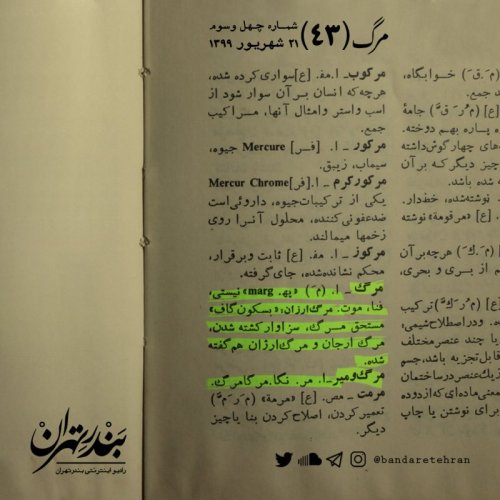 مرگ (۴۳) شماره چهل و سوم
۲۱ شهریور ۱۳۹۹
مرکوب_ ا.مف. [ع]سواری کرده شده،
هرچه که انسان بر آن سوار شود از
اسب و استر و امثال آنها، مراکیب
جمع.
مرکور_ ا. [فر] Mercure جیوه،
سیماب، زیبق.
مرکورکرم_ ا.[فر]Mercur Chrome
یکی از ترکیبات جیوه، داروئی است
ضدعفونی کننده، محلول آنرا روی
زخمها میمالند.
مرکوز_ ا. مف. [ع] ثابت و برقرار،
محکم نشانده شده، جای گرفته.
مرگ_ ا. (مَ) «په. marg» نیستی،
فنا، موت. مرگ ارزان: «بسکون گاف»
مستحق مرگ، سزاوار کشته شدن،
مرگ ارجان و مرگ ارزان هم گفته
شده.
مرگ و میر_ا. مر. نگا. مرگامرگ.
مرمت_ مص. [ع] «مرمة» (مَ رَ مَّ)
تعمیر کردن، اصلاح کردن بنا یا چیز
دیگر.
(م َ.ق َ) خوابگاه،
جمع.
[ع] (مُ رَ قَّ) جامهٔ
پاره بهم دوخته.
های چهارگوش داشته
چیز دیگر که بر آن
شده باشد.
نوشته شده، خط‌دار.
[ع] «مرقومة» نوشته
(مَ.كَ) هرچه بر آن
از بری و بحری،
[ع] (مُ رَ كَّ) ترکیب
و در اصطلاح شیمی:
با چند عنصر مختلف
قابل تجزیه باشد، جسم
یک عنصر در ساختمان
معنی ماده‌ای که از دوده
برای نوشتن یا چاپ
بندر تهران
رادیو اینترنتی بندر تهران
@bandaretehran